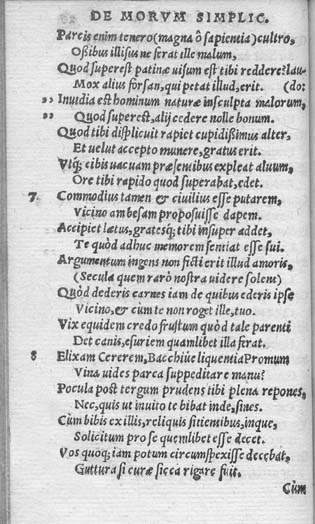 DE MORVM SIMPLIC.
Parcis enim tenero (magna ô sapientia) cultro,
Oßibus illisus ne ferat ille malum,
Quod superest patinæ uisum est tibi reddere? lau-
Mox alius forsan, qui petat illud, erit. (do:
,, Inuidia est hominum naturæ insculpta malorum,
,, Quod superest, alij cedere nolle bonum.
Quod tibi displicuit rapiet cupidißimus alter,
Et uelut accepto munere, gratus erit.
Vtq; cibis uacuam præsentibus expleat aluum,
Ore tibi rapido quod superabat, edet.
7. Commodius tamen & ciuilius esse putarem,
Vicino ambesam proposuisse dapem.
Accipiet lætus, gratesq; tibi insuper addet,
Te quòd adhuc memorem sentiat esse sui.
Argumentum ingens non ficti erit illud amoris,
(Secula quem rarò nostra uidere solent)
Quòd dederis carnes iam de quibus ederis ipse
Vicino, & cùm te non roget ille, tuo.
Vix equidem credo frustum quòd tale parenti
Det canis, esuriem quamlibet illa ferat.
8 Elixam Cererem, Bacchiúe liquentia Promum
Vina uides parca suppeditare manu?
Pocula post tergum prudens tibi plena repones,
Nec, quis ut inuito te bibat inde, sines.
Cùm bibis ex illis, reliquis sitientibus, inque,
Solicitum pro se quemlibet esse decet.
Vos quoq; iam potum circumspexisse decebat,
Guttura si curæ sicca rigare fuit.
Cùm